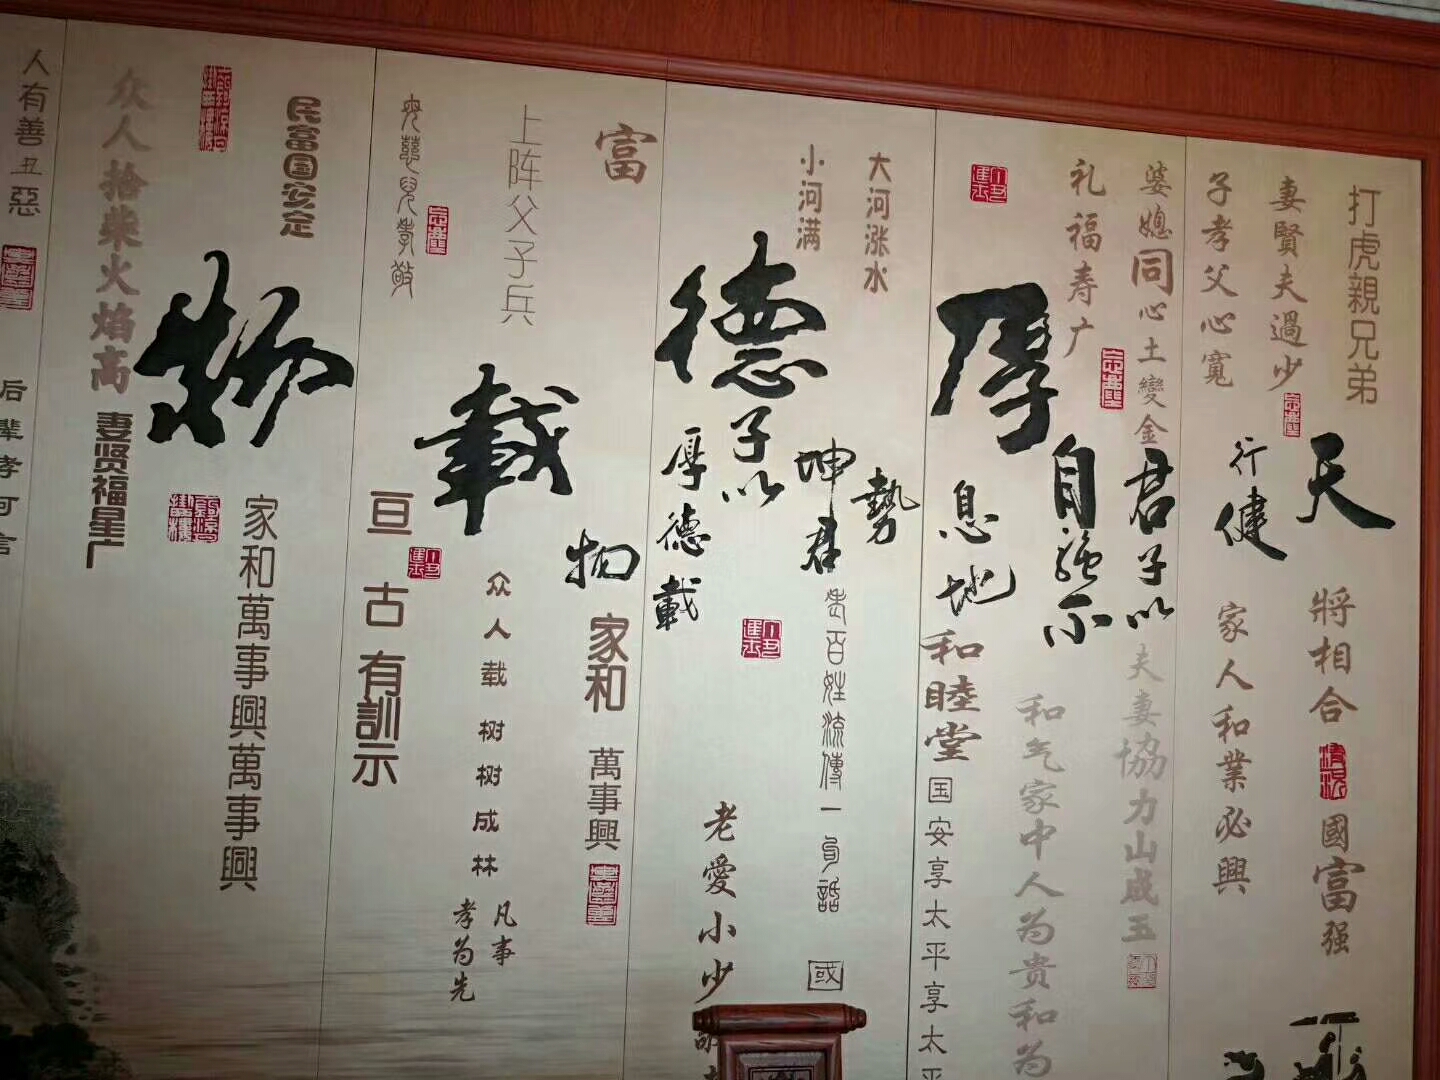 打虎親兄弟
妻賢夫過少
子孝父心寬
天
行健
將相合
國富强
家人和業必興
婆媳同心土變金
君子以
自強不
夫妻協力山成玉
礼福寿广
厚
息地
和睦堂
国安享太平享太平
和气家中人为贵和为
大河涨水
小河满
勢
坤君
百姓流傳一句話
國
德
子以
厚德載
老愛小少敬
富
物
家和
萬事興
上阵父子兵
載
众人载树树成林
凡事
孝为先
父慈兒孝敬
亘古有訓示
民富国安定
物
家和萬事興萬事興
众人拾柴火焰高
妻贤福星广
人有善丑惡
后輩孝可言